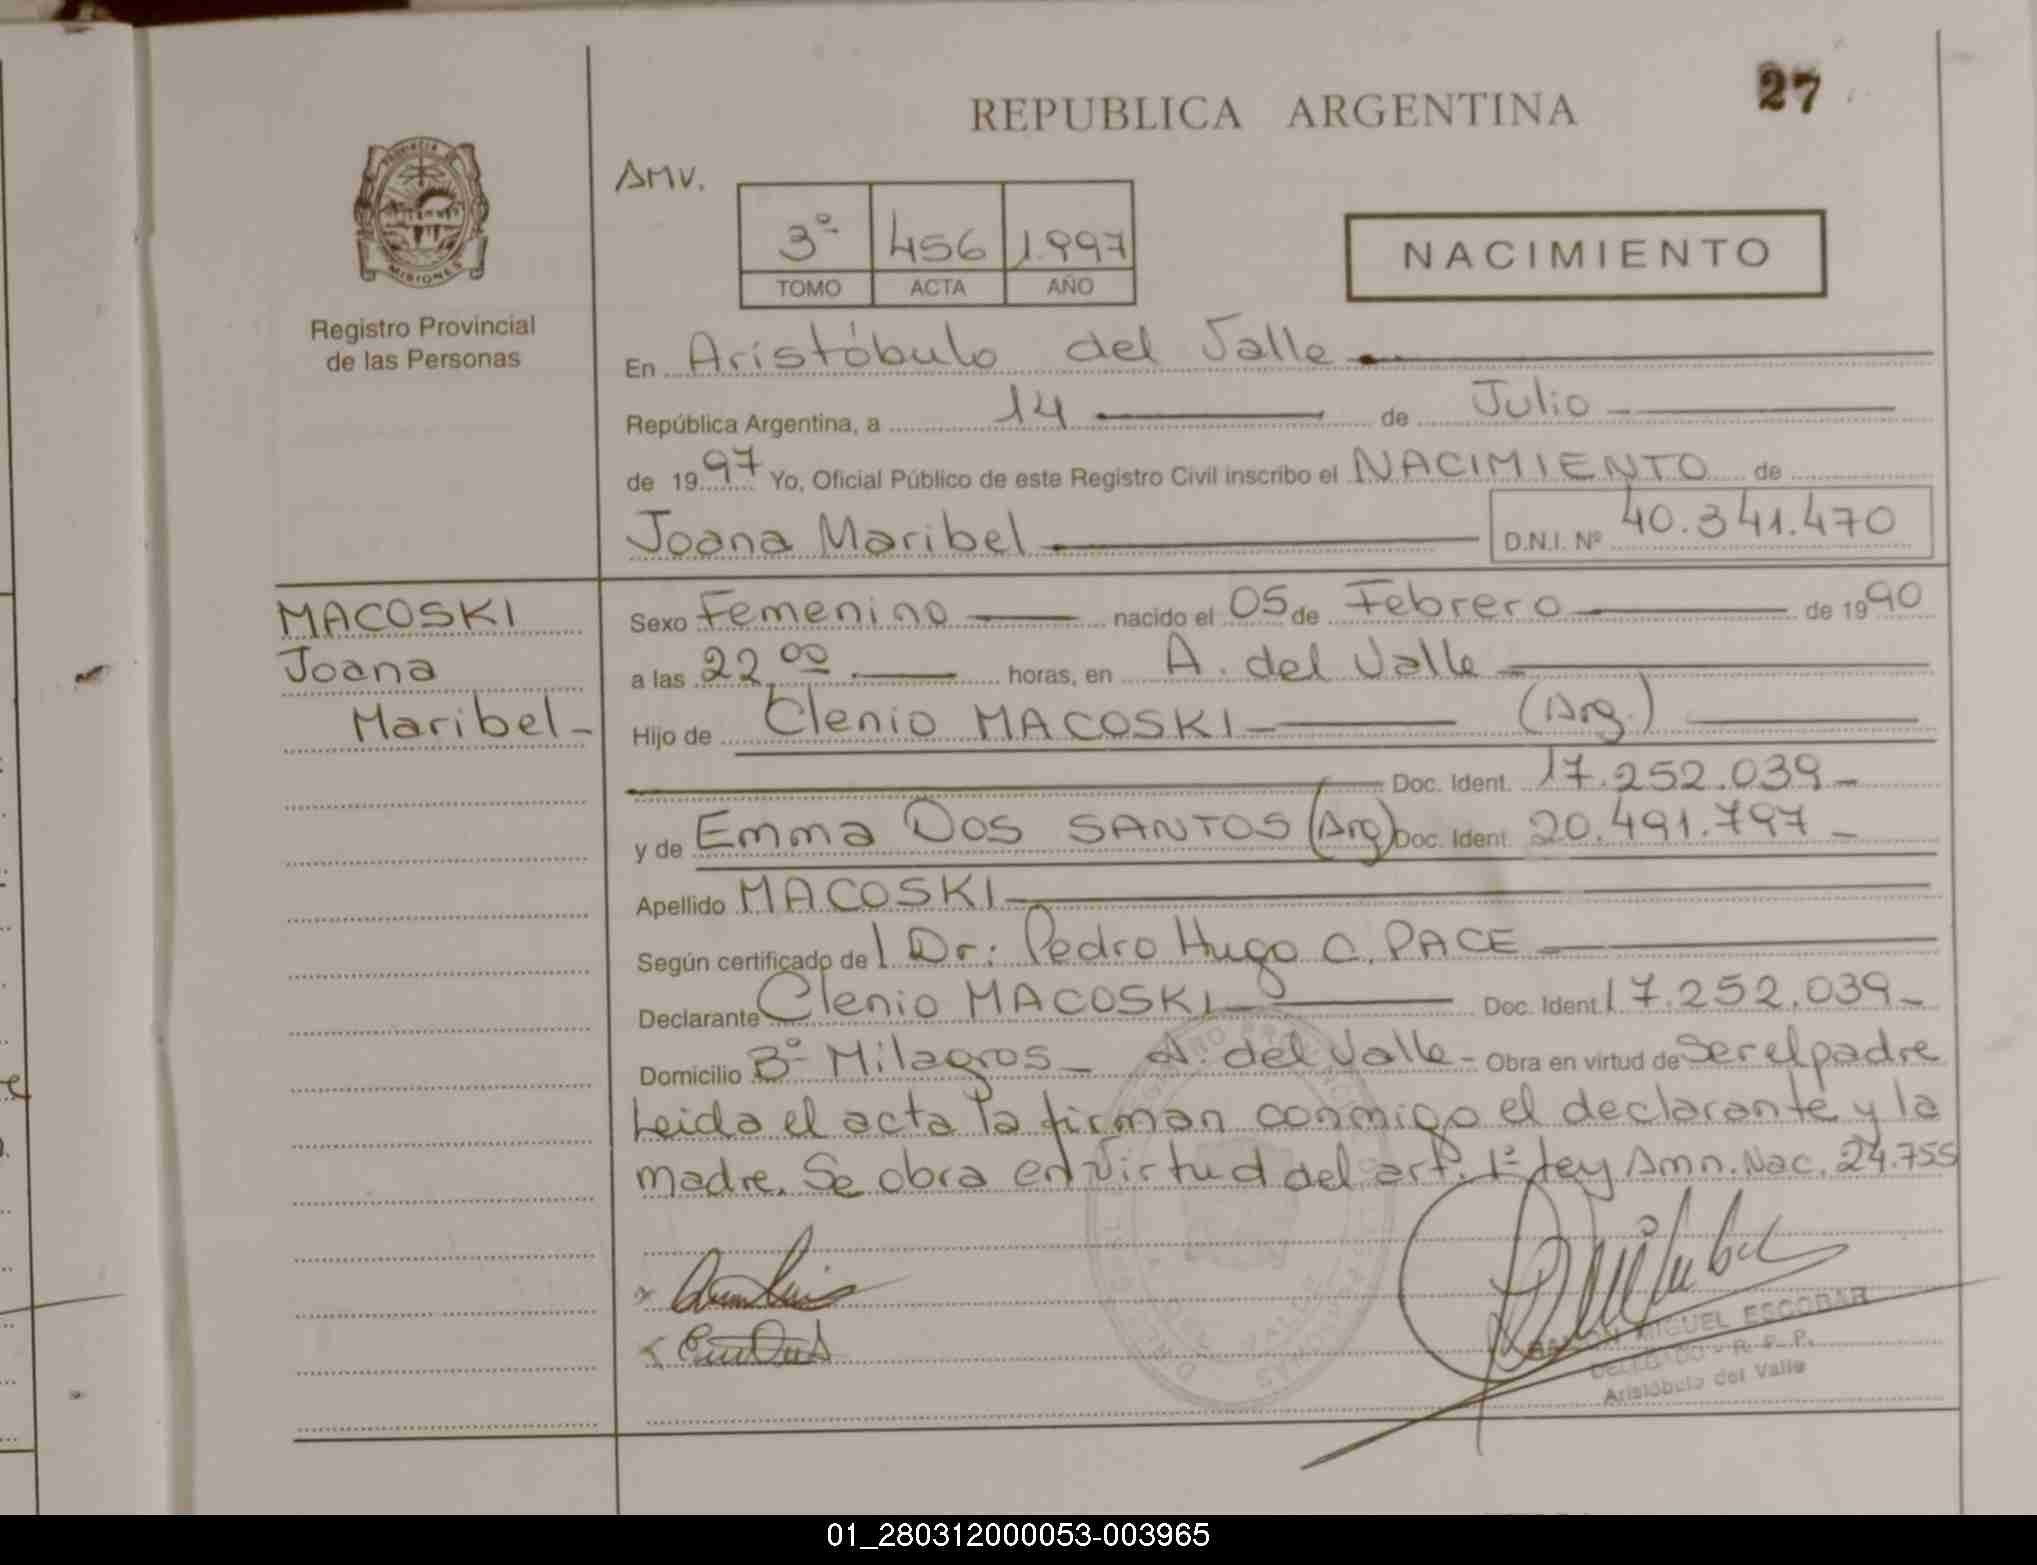 27
REPUBLICA ARGENTINA
PROVINCIA DE
MISIONES
Registro Provincial
de las Personas
AMV.
3º 456 1.997
TOMO ACTA AÑO
NACIMIENTO
En Aristóbulo del Valle
República Argentina, a 14 de Julio
de 1997 Yo, Oficial Público de este Registro Civil inscribo el NACIMIENTO de
Joana Maribel D.N.I. Nº 40.341.470
MACOSKI
Joana
Maribel-
Sexo Femenino nacido el 05 de Febrero de 1990
a las 22,00 horas, en A. del Valle
Hijo de Clenio MACOSKI (Arg.)
Doc. Ident. 17.252.039-
y de Emma DOS SANTOS (Arg) Doc. Ident. 20.491.797-
Apellido MACOSKI
Según certificado de l Dr: Pedro Hugo C. PACE
Declarante Clenio MACOSKI Doc. Ident. 17.252.039-
Domicilio Bº Milagros- A. del Valle- Obra en virtud de ser el padre
Leida el acta la firman conmigo el declarante y la
madre. Se obra en virtud del art. 1º Ley Amn. Nac. 24.755
RAMON MIGUEL ESCOBAR
DELEGADO - R. P. P.
Aristóbulo del Valle
01_280312000053-003965